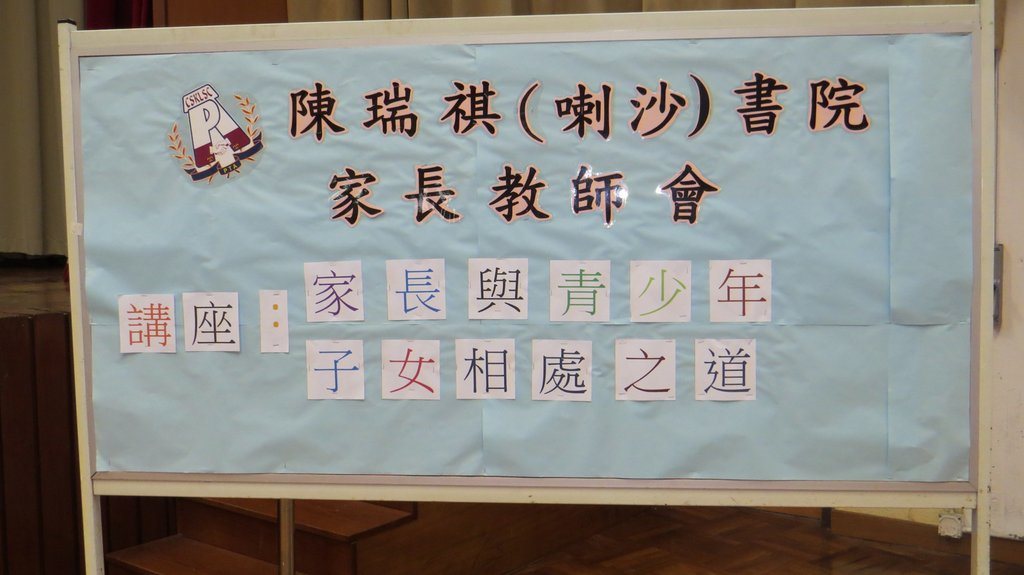 CSKLSC
PTA
陳瑞祺(喇沙)書院
家長教師會
講座：家長與青少年
子女相處之道